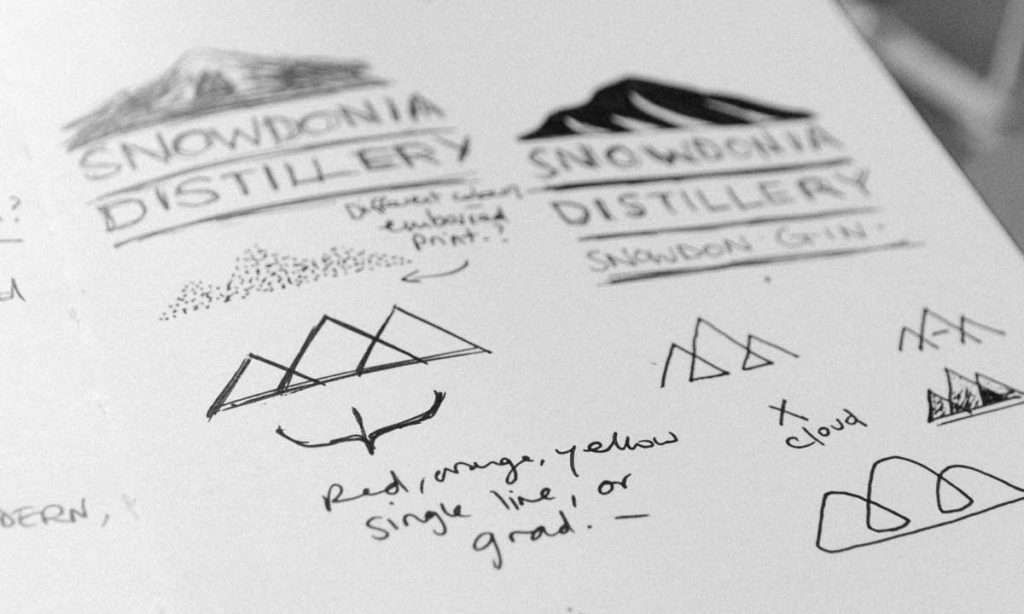 SNOWDONIA
DISTILLERY
SNOWDONIA
DISTILLERY
SNOWDON GIN.
Different when
embossed
print.?
?
Red, orange, yellow
single line, or
grad. —
X
cloud
DERN,